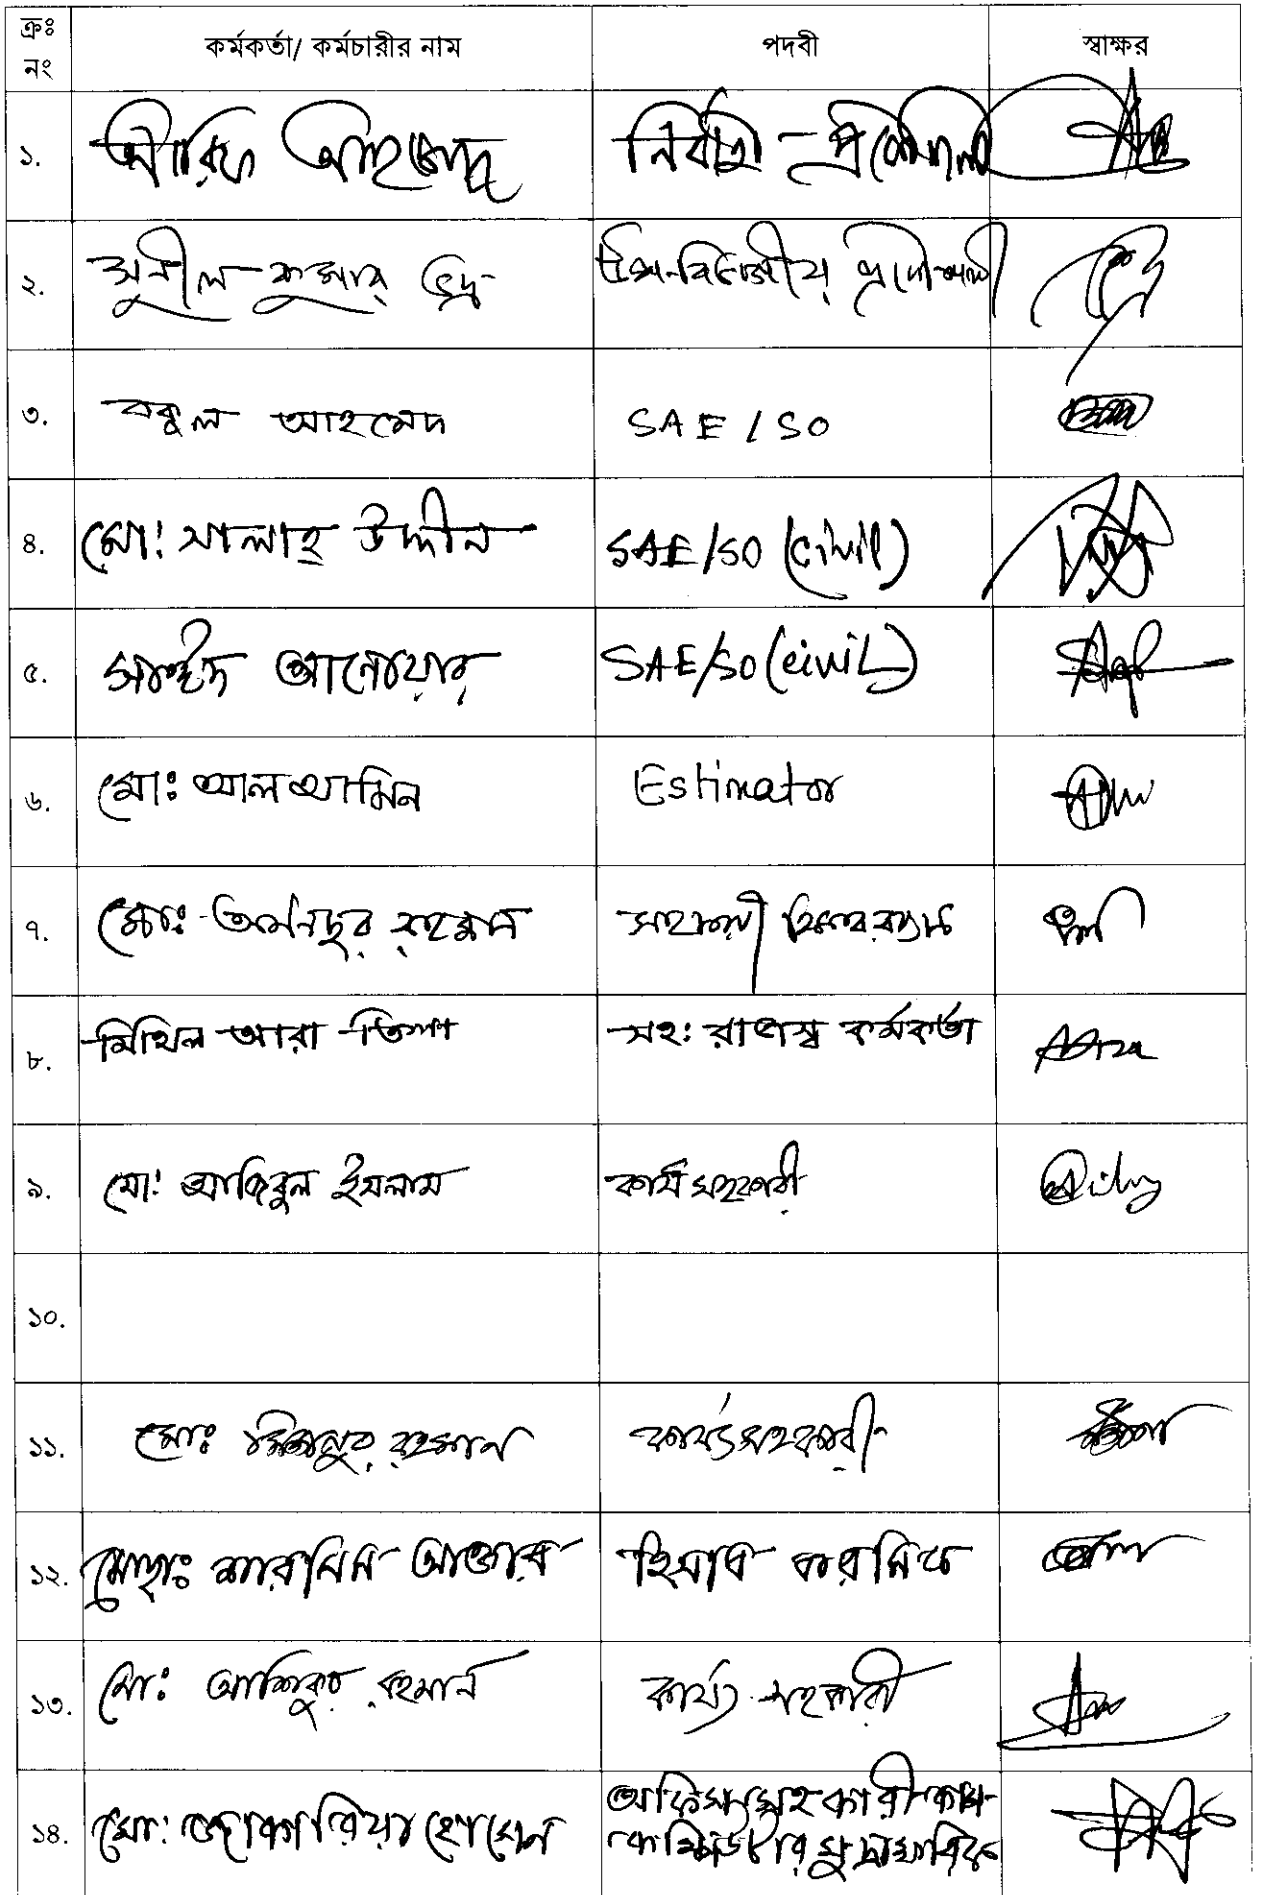 ক্রঃ নং কর্মকর্তা/ কর্মচারীর নাম পদবী স্বাক্ষর
১. আরিফ আহম্মেদ নির্বাহী - প্রকৌশলী
২. সুনীল কুমার ভদ্র উপ-বিভাগীয় প্রকৌশলী
৩. বকুল আহমেদ SAE / SO
৪. মো: সালাহ উদ্দীন SAE/SO (civil)
৫. সাঈদ আনোয়ার SAE/SO (civil)
৬. মোঃ আল আমিন Estimator
৭. মোঃ রহমান সহকারী
৮. মিথিল আরা সহ: রাজস্ব কর্মকর্তা
৯. মো: আজিবুল ইসলাম কার্য সহকারী
১০.
১১. মোঃ মিজানুর রহমান কার্য্য সহকারী
১২. মোছাঃ শারমিন আক্তার হিসাব করনিক
১৩. মোঃ আশিকুর রহমান কার্য্য সহকারী
১৪. মো: জাকারিয়া হোসেন অফিস সহকারী কাম-
কম্পিউটার মুদ্রাক্ষরিক